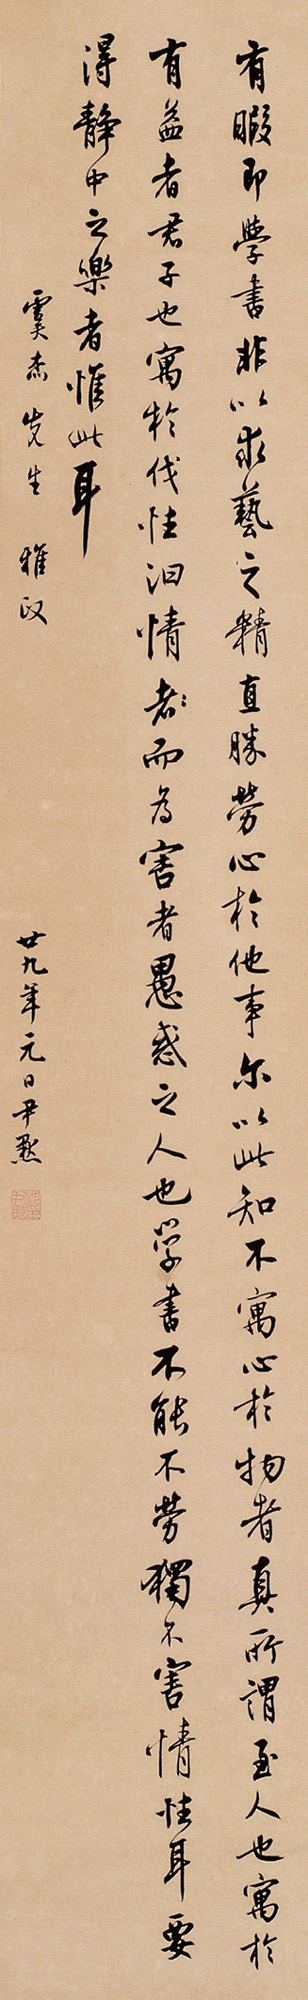 有暇即學書非以求藝之精直勝勞心於他事尔以此知不寓心於物者真所謂至人也寓於
有益者君子也寓於伐性汩情者:而為害者愚惑之人也学書不能不勞獨不害情性耳要
得静中之樂者惟此耳
虞杰先生 雅政
廿九年元日尹默